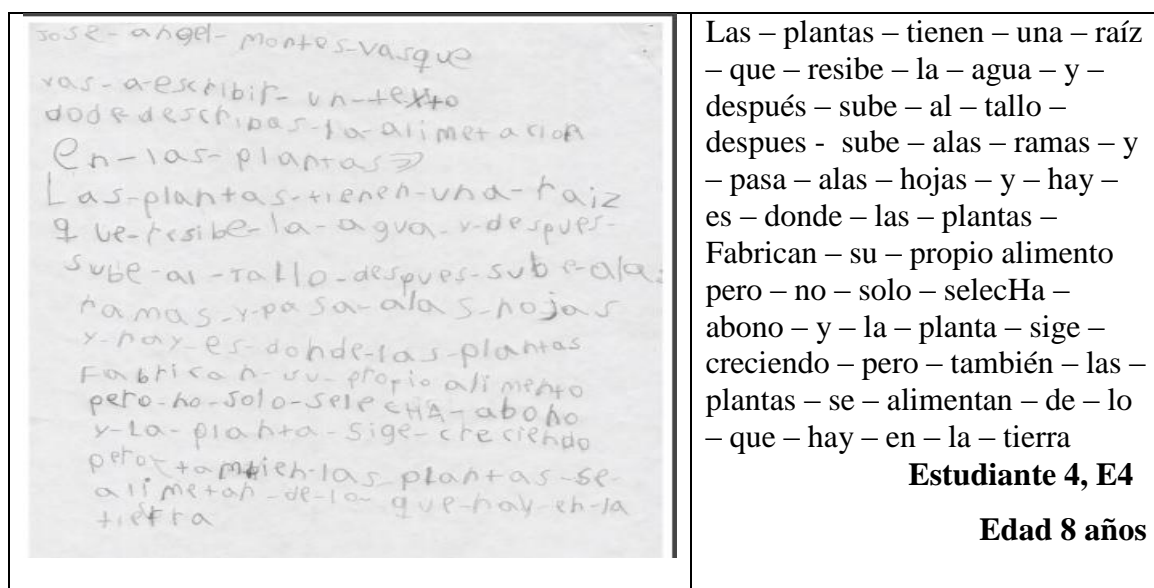 Jose-angel-montes-vasque
vas-a-escribir-un-texto
dode describas-la-alimetacion
en-las-plantas
Las-plantas-tienen-una-raiz
que-resibe-la-agua-y-despues-
sube-al-tallo-despues-sube-alas
ramas-y-pasa-alas-hojas
y-hay-es-donde-las-plantas
Fabrican-su-propio alimento
pero-no-solo-selecHA-abono
y-La-planta-sige-creciendo
pero-tambien-las-plantas-se-
alimetan-de-lo-que-hay-en-la
tierra
Las – plantas – tienen – una – raíz
– que – resibe – la – agua – y –
después – sube – al – tallo –
despues - sube – alas – ramas – y
– pasa – alas – hojas – y – hay –
es – donde – las – plantas –
Fabrican – su – propio alimento
pero – no – solo – selecHa –
abono – y – la – planta – sige –
creciendo – pero – también – las –
plantas – se – alimentan – de – lo
– que – hay – en – la – tierra
Estudiante 4, E4
Edad 8 años